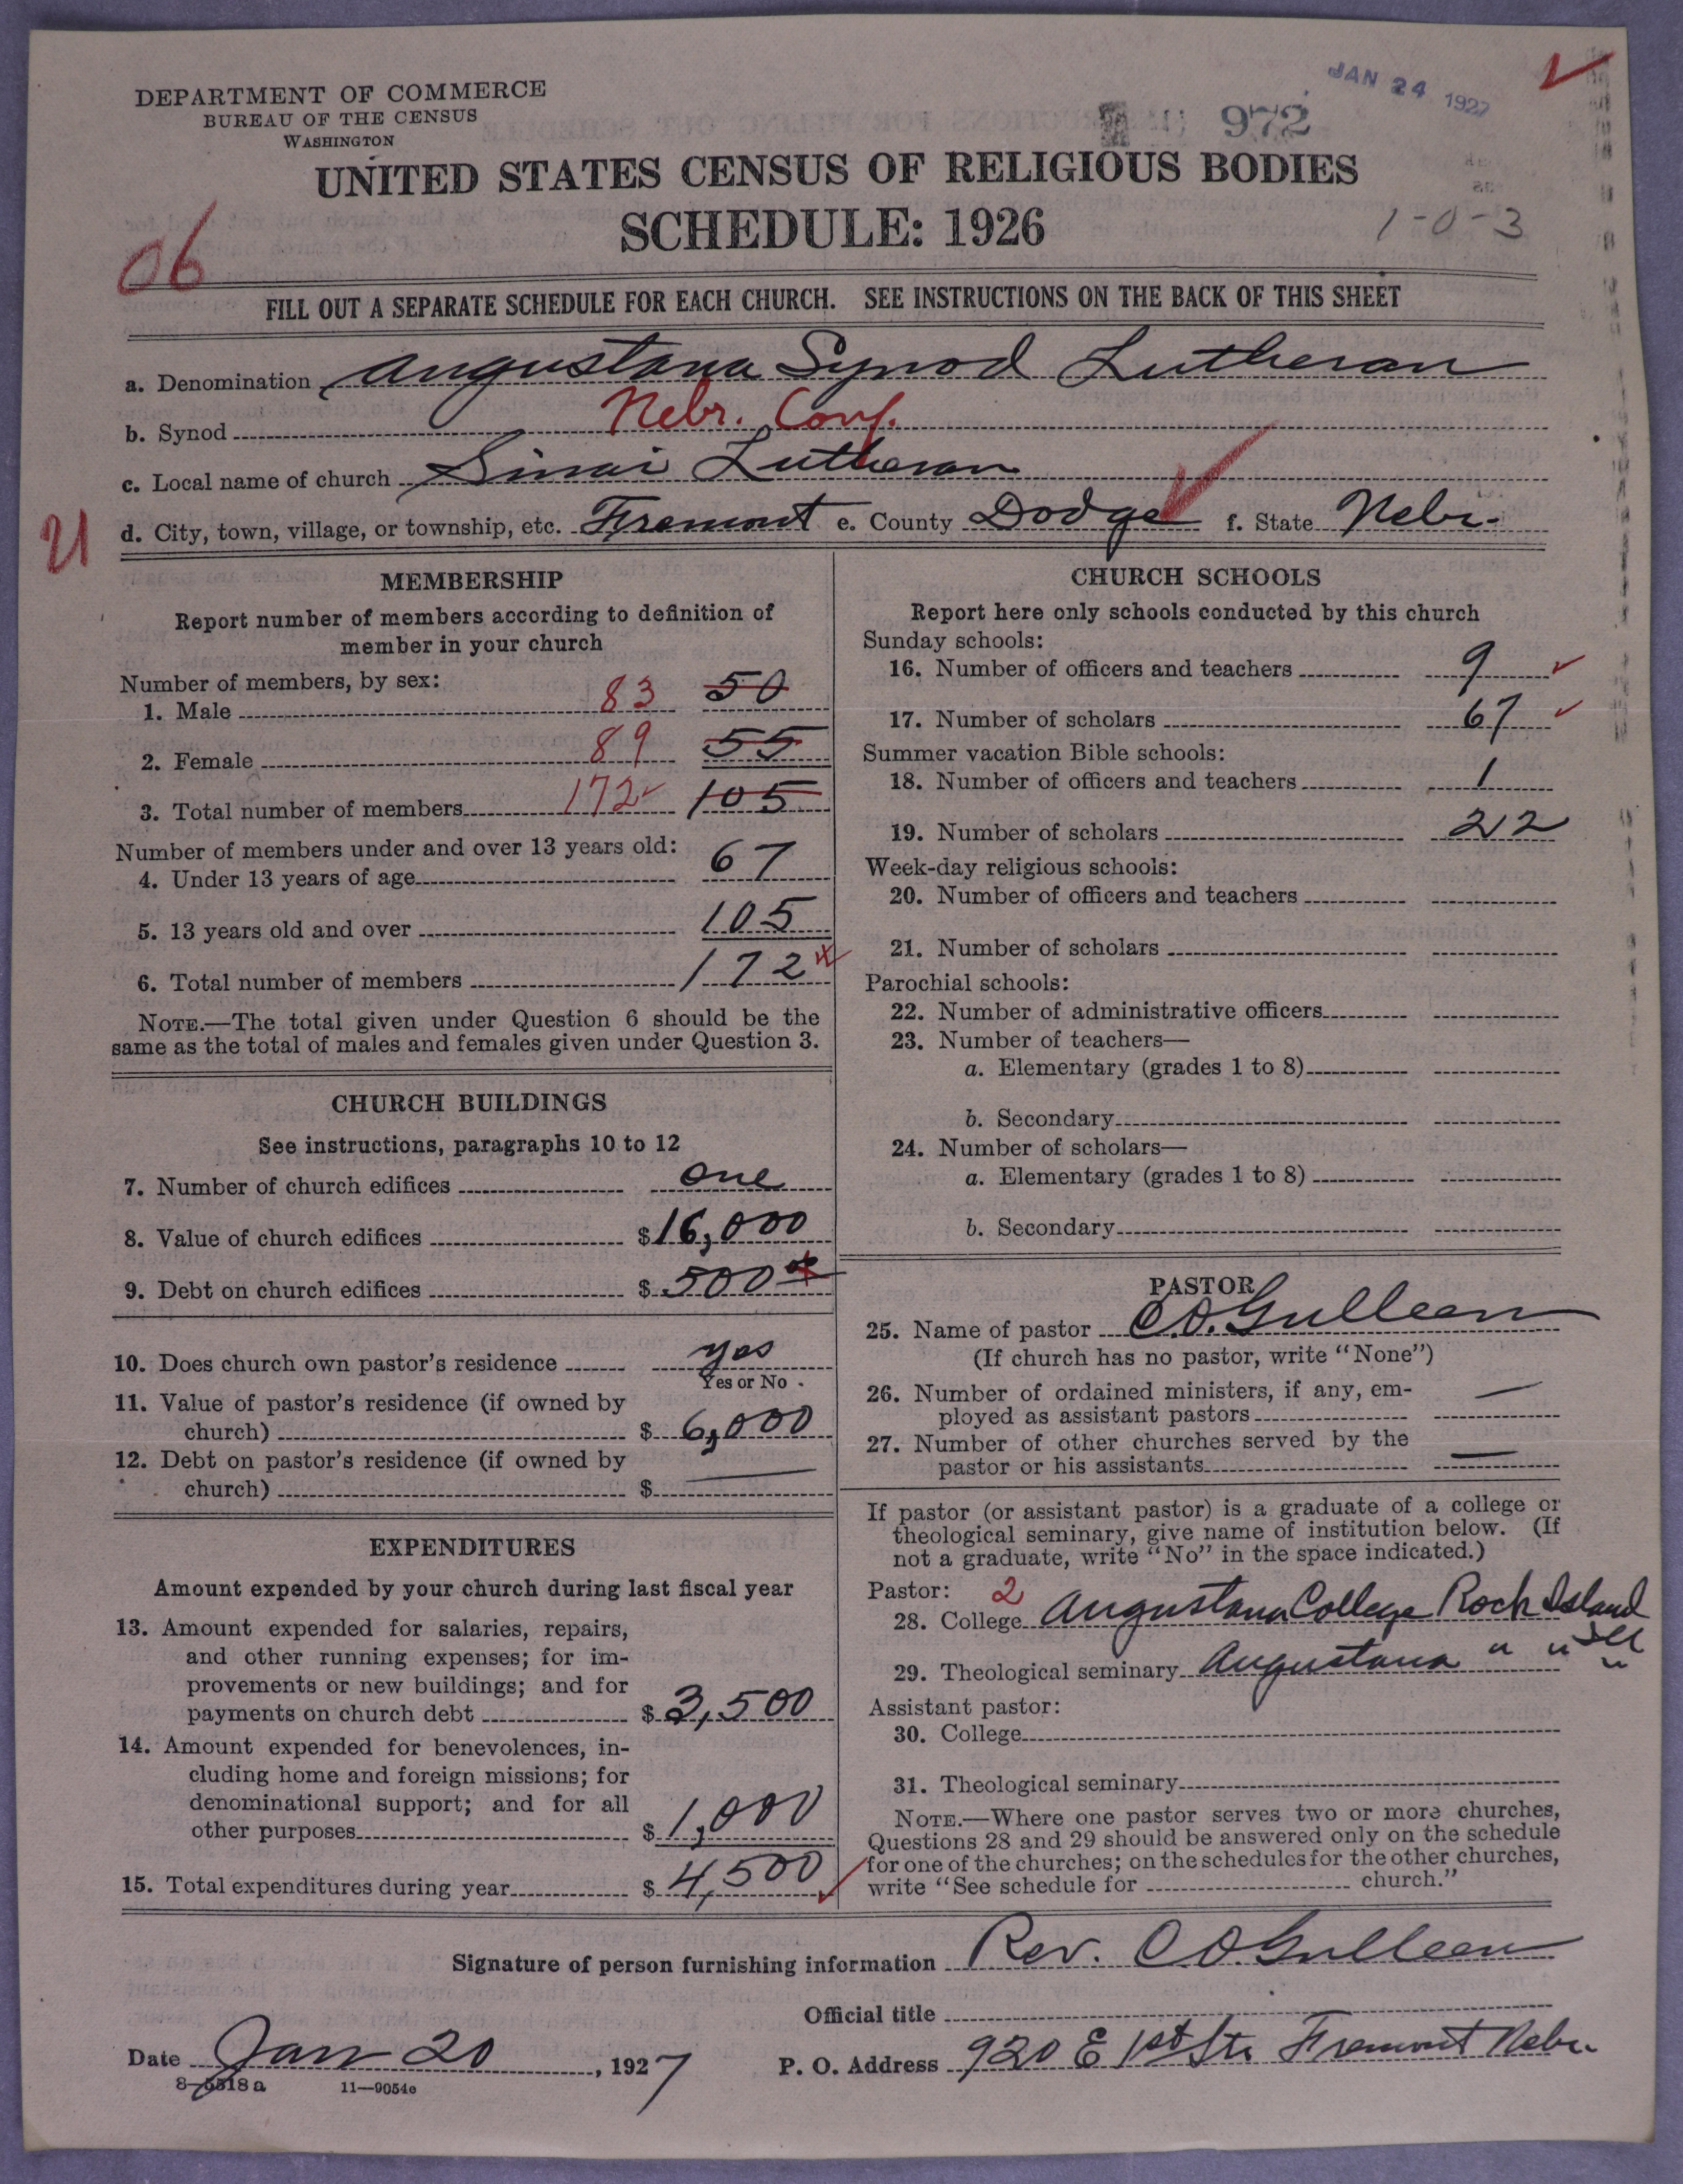 DEPARTMENT OF COMMERCE
BUREAU OF THE CENSUS
WASHINGTON
972
JAN 24 1927
UNITED STATES CENSUS OF RELIGIOUS BODIES
SCHEDULE: 1926
1-0-3
06
FILL OUT A SEPARATE SCHEDULE FOR EACH CHURCH. SEE INSTRUCTIONS ON THE BACK OF THIS SHEET
a. Denomination Augustana Synod Lutheran
b. Synod Nebr. Conf.
c. Local name of church Sinai Lutheran
21
d. City, town, village, or township, etc. Fremont e. County Dodge f. State Nebr.
MEMBERSHIP
Report number of members according to definition of
member in your church
Number of members, by sex:
1. Male 83 50
2. Female 89 55
3. Total number of members 172 105
Number of members under and over 13 years old:
4. Under 13 years of age 67
5. 13 years old and over 105
6. Total number of members 172
NOTE.—The total given under Question 6 should be the
same as the total of males and females given under Question 3.
CHURCH BUILDINGS
See instructions, paragraphs 10 to 12
7. Number of church edifices one
8. Value of church edifices $16,000
9. Debt on church edifices $500
10. Does church own pastor's residence yes
Yes or No
11. Value of pastor's residence (if owned by
church) $6,000
12. Debt on pastor's residence (if owned by
church) $ —
EXPENDITURES
Amount expended by your church during last fiscal year
13. Amount expended for salaries, repairs,
and other running expenses; for im-
provements or new buildings; and for
payments on church debt $3,500
14. Amount expended for benevolences, in-
cluding home and foreign missions; for
denominational support; and for all
other purposes $1,000
15. Total expenditures during year $4,500
CHURCH SCHOOLS
Report here only schools conducted by this church
Sunday schools:
16. Number of officers and teachers 9
17. Number of scholars 67
Summer vacation Bible schools:
18. Number of officers and teachers 1
19. Number of scholars 22
Week-day religious schools:
20. Number of officers and teachers
21. Number of scholars
Parochial schools:
22. Number of administrative officers
23. Number of teachers—
a. Elementary (grades 1 to 8)
b. Secondary
24. Number of scholars—
a. Elementary (grades 1 to 8)
b. Secondary
PASTOR
25. Name of pastor C.O. Gulleen
(If church has no pastor, write "None")
26. Number of ordained ministers, if any, em-
ployed as assistant pastors —
27. Number of other churches served by the
pastor or his assistants —
If pastor (or assistant pastor) is a graduate of a college or
theological seminary, give name of institution below. (If
not a graduate, write "No" in the space indicated.)
Pastor: 2
28. College Augustana College Rock Island
Ill
29. Theological seminary Augustana " " "
Assistant pastor:
30. College
31. Theological seminary
NOTE.—Where one pastor serves two or more churches,
Questions 28 and 29 should be answered only on the schedule
for one of the churches; on the schedules for the other churches,
write "See schedule for church."
Signature of person furnishing information Rev. C O. Gulleen
Official title
Date Jan 20, 1927 P. O. Address 920 E 1st St. Fremont Nebr.
8-5518a 11—9054e